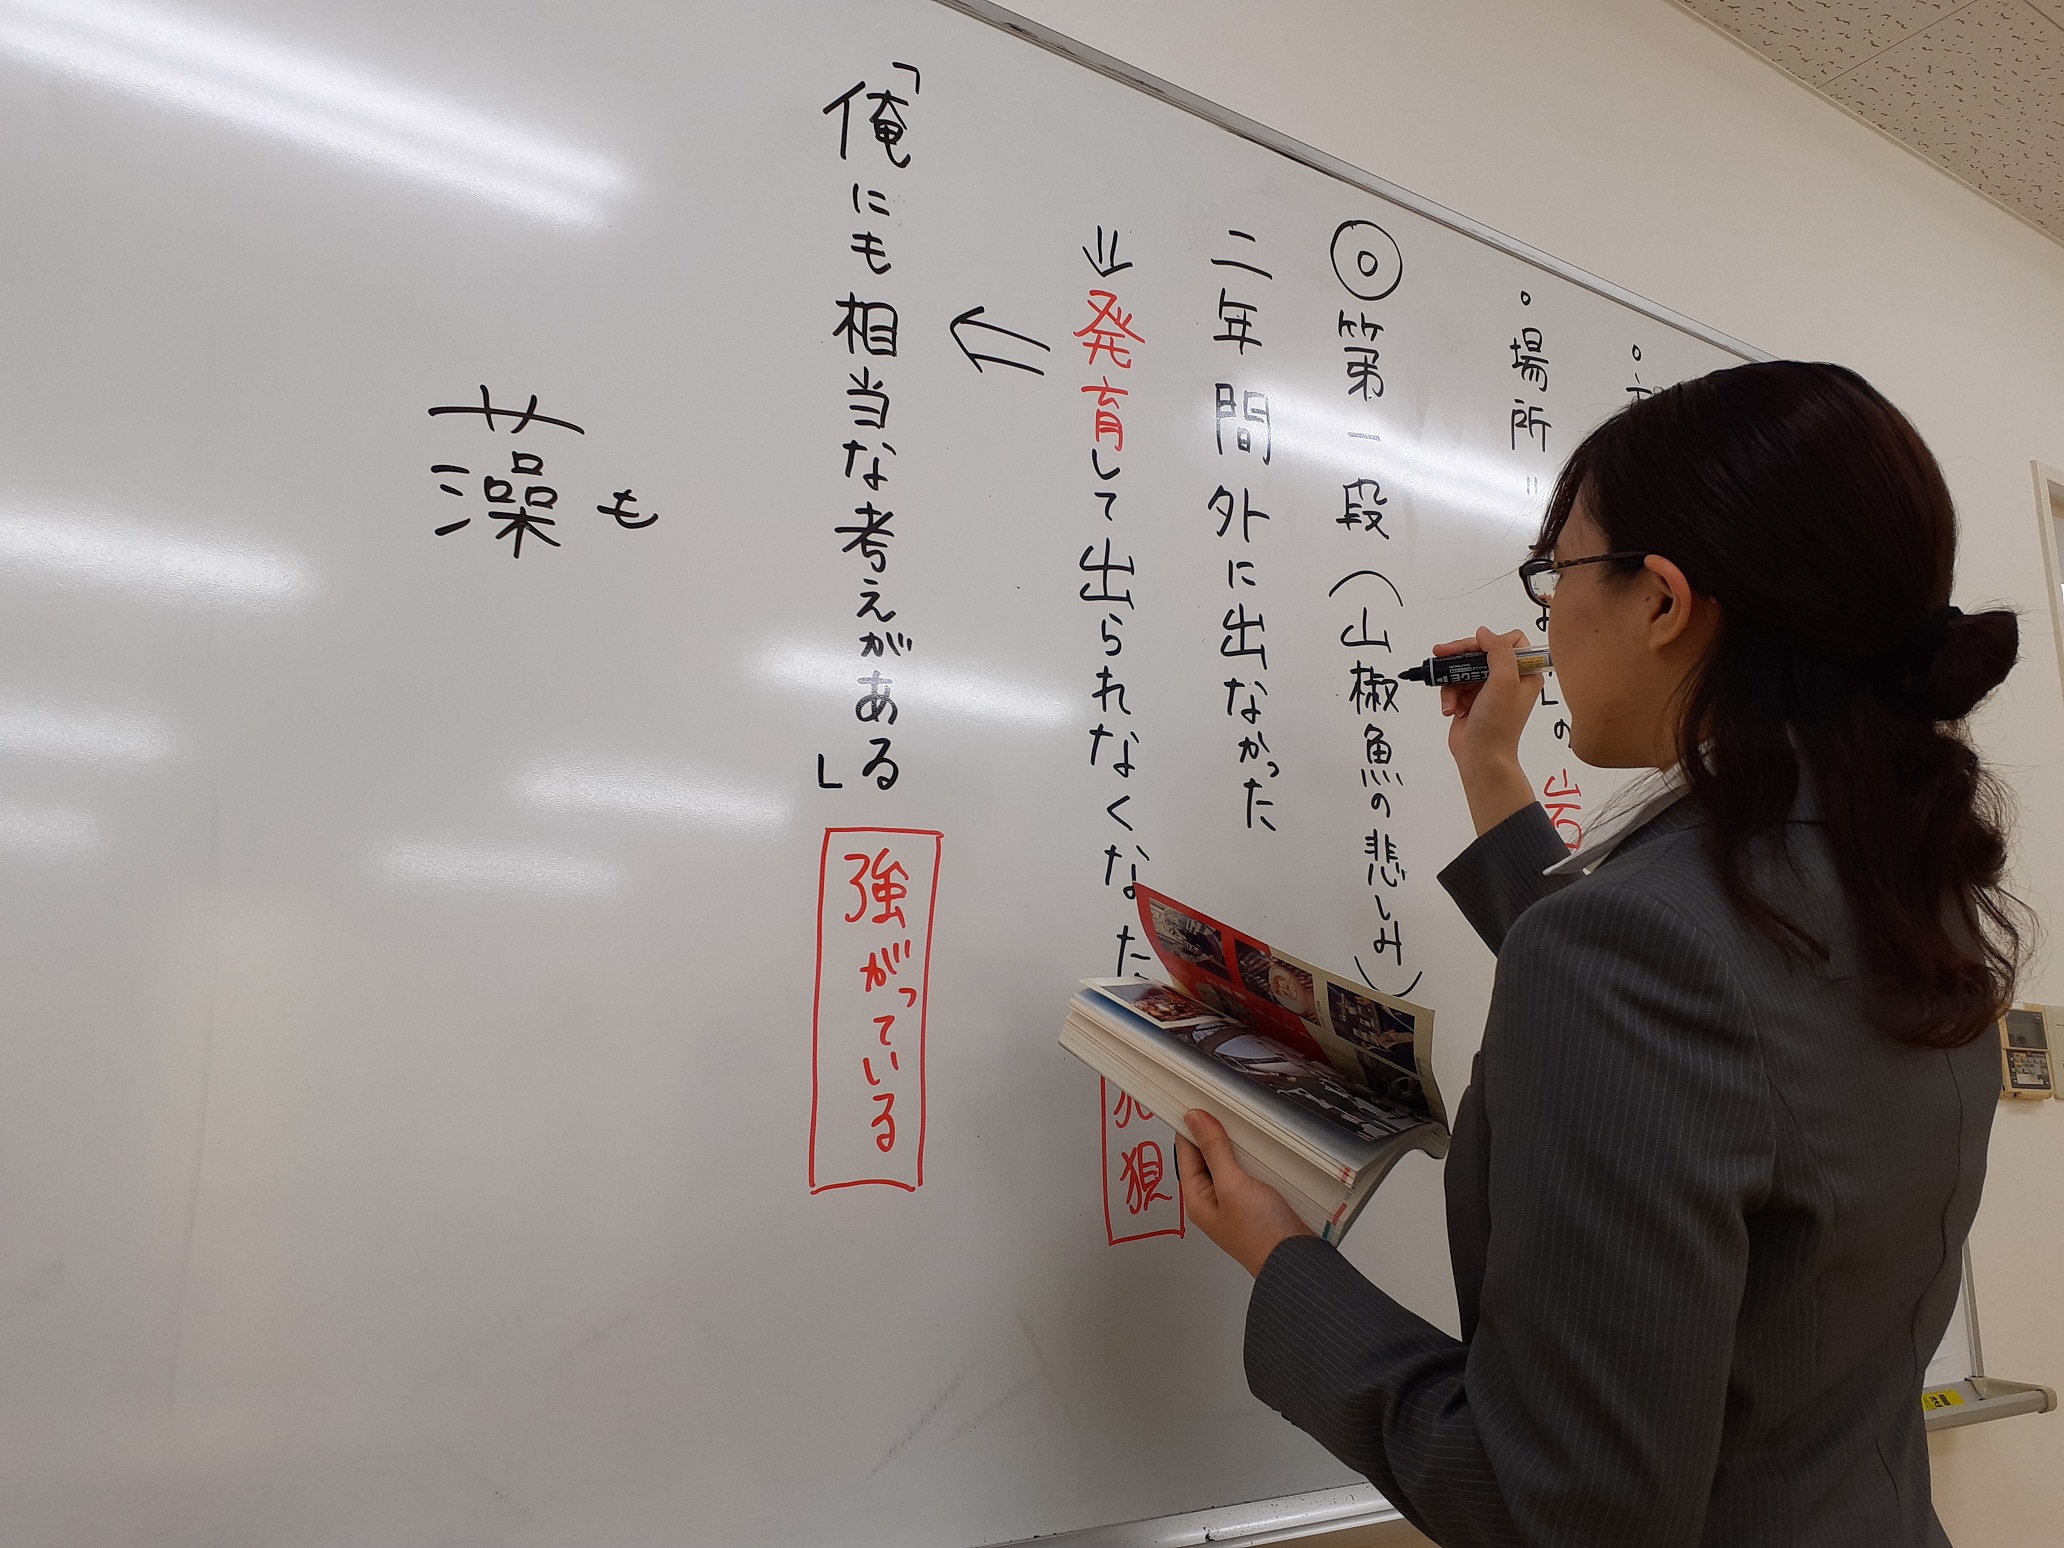 ・場所＝
の岩
◎第一段（山椒魚の悲しみ）
二年間外に出なかった
⇒発育して出られなくなった
狽
⇐
「俺にも相当な考えがある」
強がっている
藻も